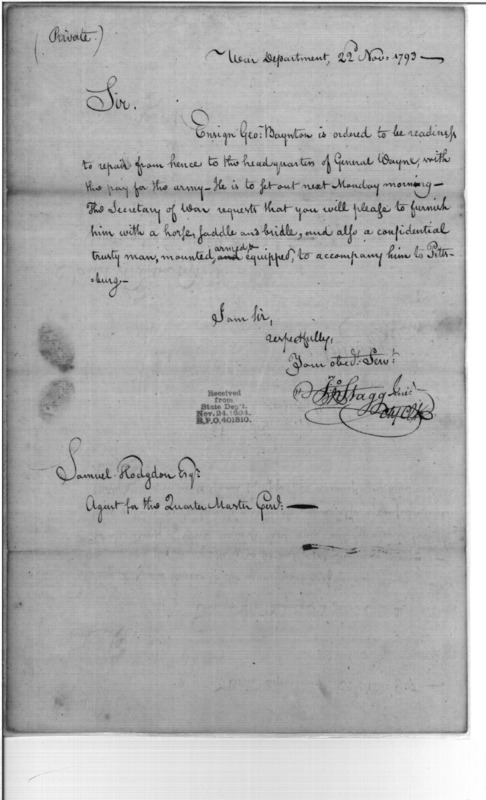 (Private.)
War Department, 22d Nov. 1793
Sir.
Ensign Geo: Baynton is ordered to be readiness
to repair from hence to the headquarters of General Wayne, with
the pay for the army - He is to set out next Monday morning -
The Secretary of War requests that you will please to furnish
him with a horse, saddle and bridle, and also a confidential
trusty man, mounted, armed & equipped, to accompany him to Pitts-
burg.-
I am Sir,
respectfully,
Your obed. Serv.
Jno Stagg Junr
Received
from
State Dep't.
Nov. 24, 1894.
R.P.O. 401810.
Samuel Hodgdon Esqr.
Agent for the Quarter Master Genl: